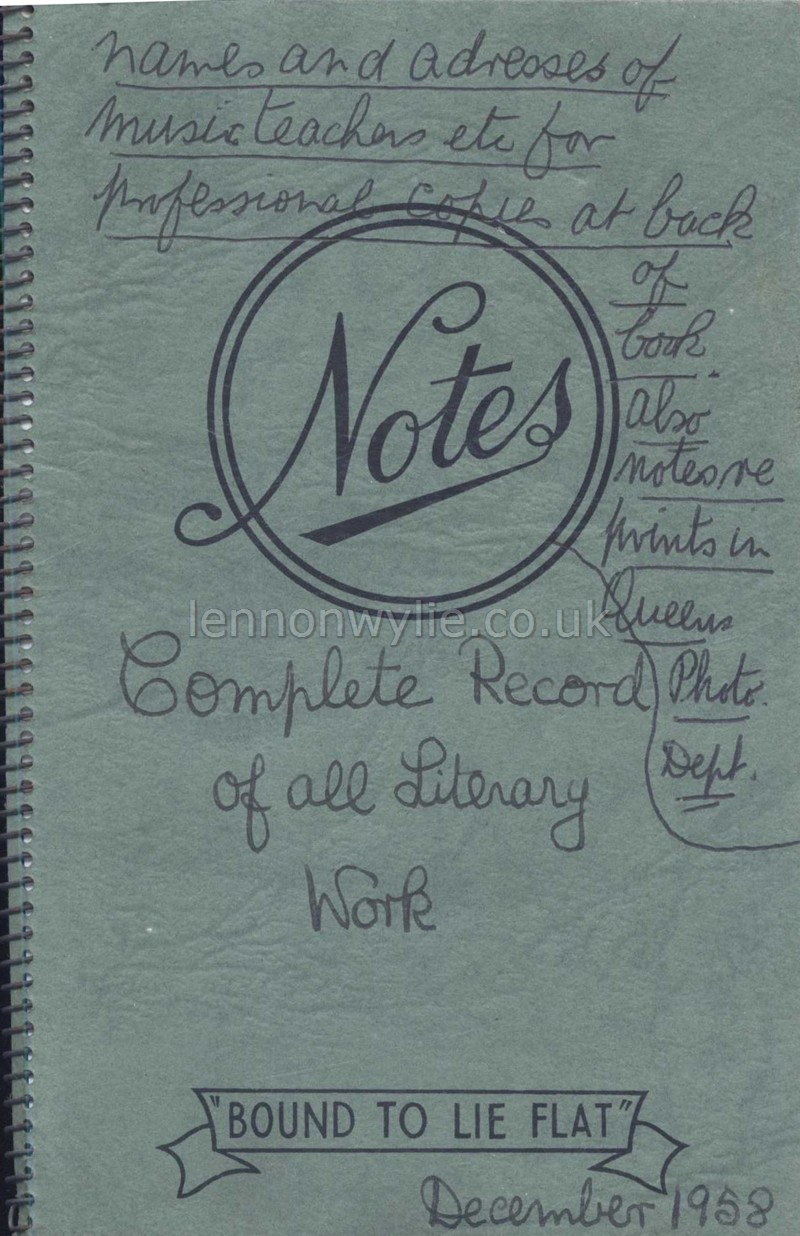 names and adresses of
music teachers etc for
professional copies at back
of
book.
also
notes re
prints in
Queens
Photo.
Dept.
Notes
lennonwylie.co.uk
Complete Record
of all Literary
Work
"BOUND TO LIE FLAT"
December 1958